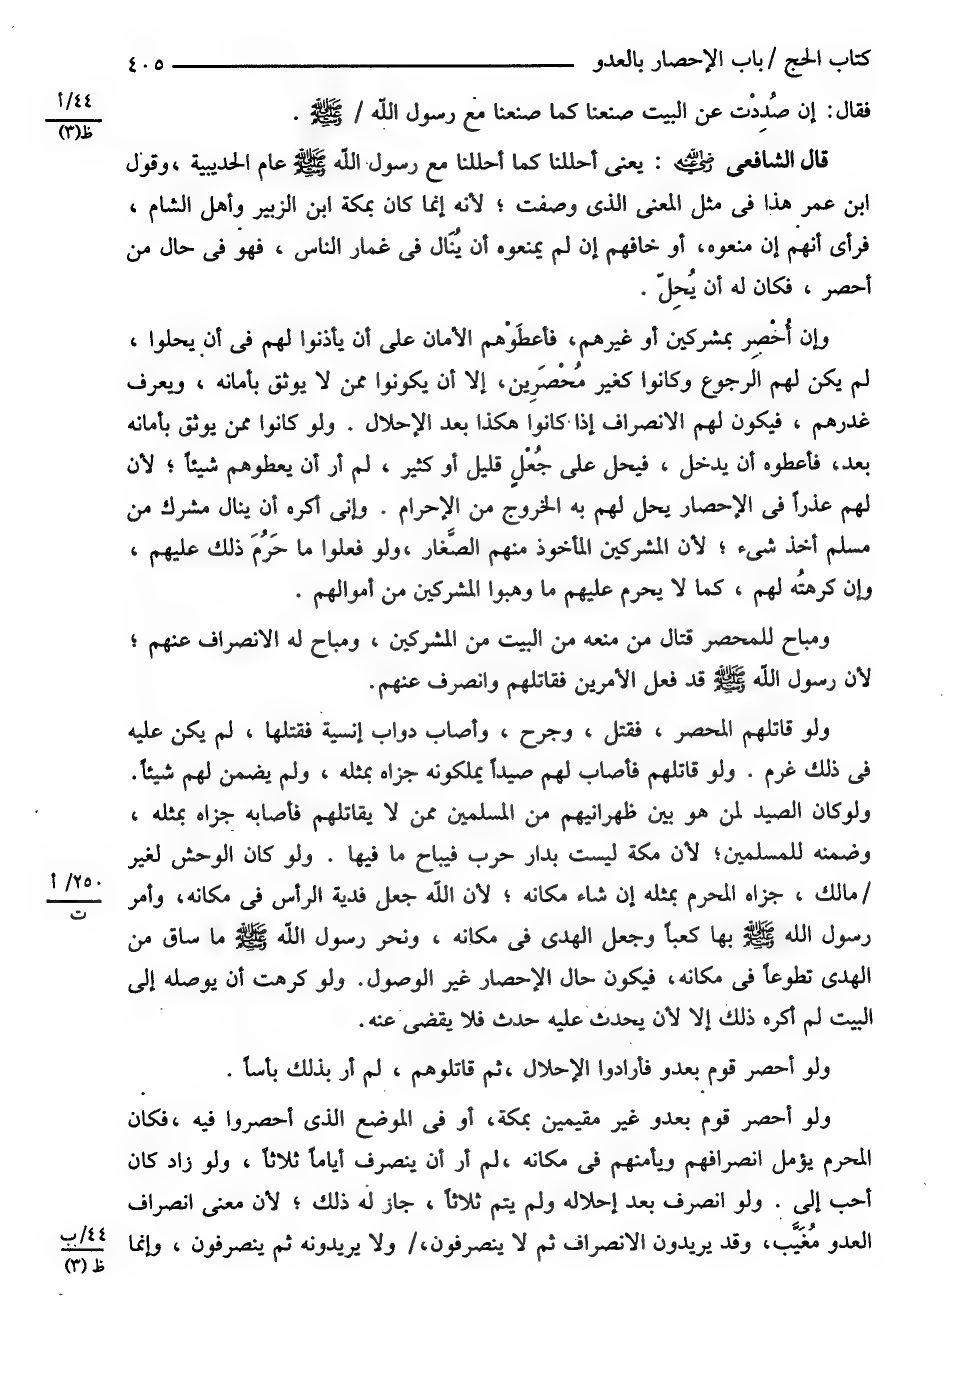 كتاب الحج / باب الإحصار بالعدو ٤٠٥
٤٤/أ
ظ(٣)
فقال: إن صُدِدْت عن البيت صنعنا كما صنعنا مع رسول اللّه / ﷺ .
قال الشافعى رضي الله عنه : يعنى أحللنا كما أحللنا مع رسول اللّه ﷺ عام الحديبية ،وقول
ابن عمر هذا فى مثل المعنى الذى وصفت ؛ لأنه إنما كان بمكة ابن الزبير وأهل الشام ،
فرأى أنهم إن منعوه، أو خافهم إن لم يمنعوه أن يُنَال فى غمار الناس ، فهو فى حال من
أحصر ، فكان له أن يُحِلّ .
وإن أُحْصِر بمشركين أو غيرهم، فأعطَوْهم الأمان على أن يأذنوا لهم فى أن يحلوا ،
لم يكن لهم الرجوع وكانوا كغير مُحْصَرِين، إلا أن يكونوا ممن لا يوثق بأمانه ، ويعرف
غدرهم ، فيكون لهم الانصراف إذا كانوا هكذا بعد الإحلال . ولو كانوا ممن يوثق بأمانه
بعد، فأعطوه أن يدخل ، فيحل على جُعْلٍ قليل أو كثير ، لم أر أن يعطوهم شيئاً ؛ لأن
لهم عذراً فى الإحصار يحل لهم به الخروج من الإحرام . وإنى أكره أن ينال مشرك من
مسلم أخذ شىء ؛ لأن المشركين المأخوذ منهم الصَّغار ،ولو فعلوا ما حَرُمَ ذلك عليهم ،
وإن كرهتُه لهم ، كما لا يحرم عليهم ما وهبوا المشركين من أموالهم .
ومباح للمحصر قتال من منعه من البيت من المشركين ، ومباح له الانصراف عنهم ؛
لأن رسول اللّه ﷺ قد فعل الأمرين فقاتلهم وانصرف عنهم.
ولو قاتلهم المحصر ، فقتل ، وجرح ، وأصاب دواب إنسية فقتلها ، لم يكن عليه
فى ذلك غرم . ولو قاتلهم فأصاب لهم صيداً يملكونه جزاه بمثله ، ولم يضمن لهم شيئاً.
ولوكان الصيد لمن هو بين ظهرانيهم من المسلمين ممن لا يقاتلهم فأصابه جزاه بمثله ،
وضمنه للمسلمين؛ لأن مكة ليست بدار حرب فيباح ما فيها . ولو كان الوحش لغير
٢٥٠/ أ
ت
/مالك ، جزاه المحرم بمثله إن شاء مكانه ؛ لأن اللّه جعل فدية الرأس فى مكانه، وأمر
رسول الله ﷺ بها كعباً وجعل الهدى فى مكانه ، ونحر رسول اللّه ﷺ ما ساق من
الهدى تطوعاً فى مكانه، فيكون حال الإحصار غير الوصول. ولو كرهت أن يوصله إلى
البيت لم أكره ذلك إلا لأن يحدث عليه حدث فلا يقضى عنه.
ولو أحصر قوم بعدو فأرادوا الإحلال ،ثم قاتلوهم ، لم أر بذلك بأساً .
ولو أحصر قوم بعدو غير مقيمين بمكة، أو فى الموضع الذى أحصروا فيه ،فكان
المحرم يؤمل انصرافهم ويأمنهم فى مكانه ،لم أر أن ينصرف أياماً ثلاثاً ، ولو زاد كان
أحب إلى . ولو انصرف بعد إحلاله ولم يتم ثلاثاً ، جاز له ذلك ؛ لأن معنى انصراف
العدو مُغَيَّب، وقد يريدون الانصراف ثم لا ينصرفون،/ ولا يريدونه ثم ينصرفون ، وإنما
٤٤/ب
ظ (٣)